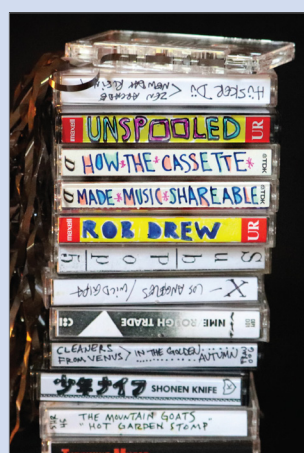 HÜSKER DÜ < ZEN ARCADE
NEW DAY RISING
maxell UNSPOOLED UR
D HOW*THE*CASSETTE* TDK
D MADE*MUSIC*SHAREABLE TDK
maxell ROB DREW UR
Sub Pop 5
X – LOS ANGELES / WILD GIFT
NME ROUGH TRADE C81
CLEANERS FROM VENUS > IN THE GOLDEN AUTUMN
少年ナイフ SHONEN KNIFE
THE MOUNTAIN GOATS
"HOT GARDEN STOMP"